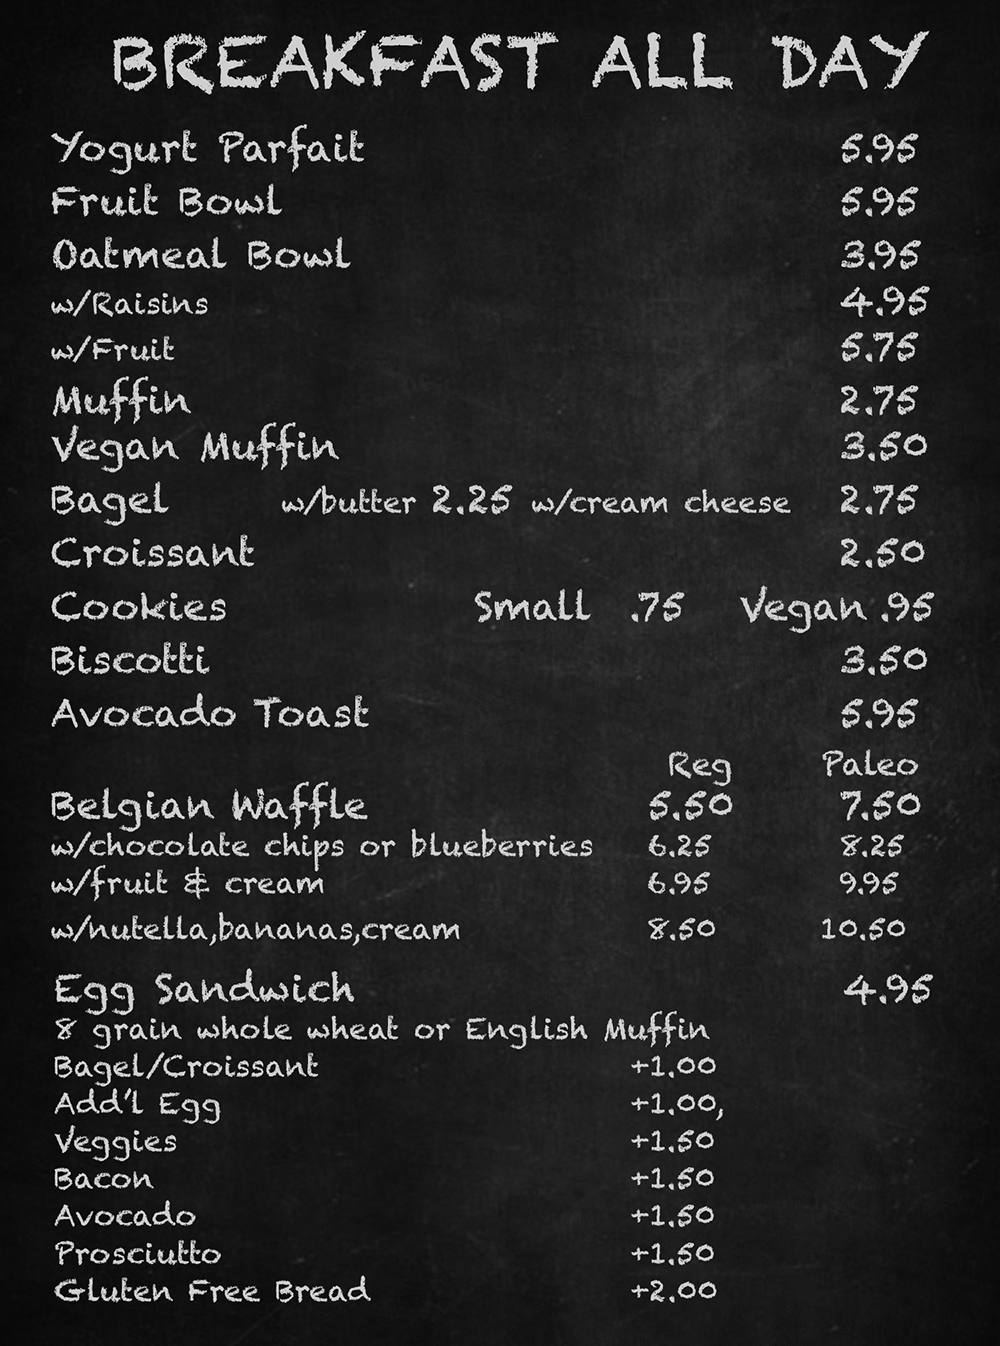 BREAKFAST ALL DAY
Yogurt Parfait 5.95
Fruit Bowl 5.95
Oatmeal Bowl 3.95
w/Raisins 4.95
w/Fruit 5.75
Muffin 2.75
Vegan Muffin 3.50
Bagel w/butter 2.25 w/cream cheese 2.75
Croissant 2.50
Cookies Small .75 Vegan .95
Biscotti 3.50
Avocado Toast 5.95
Reg Paleo
Belgian Waffle 5.50 7.50
w/chocolate chips or blueberries 6.25 8.25
w/fruit & cream 6.95 9.95
w/nutella,bananas,cream 8.50 10.50
Egg Sandwich 4.95
8 grain whole wheat or English Muffin
Bagel/Croissant +1.00
Add'l Egg +1.00,
Veggies +1.50
Bacon +1.50
Avocado +1.50
Prosciutto +1.50
Gluten Free Bread +2.00